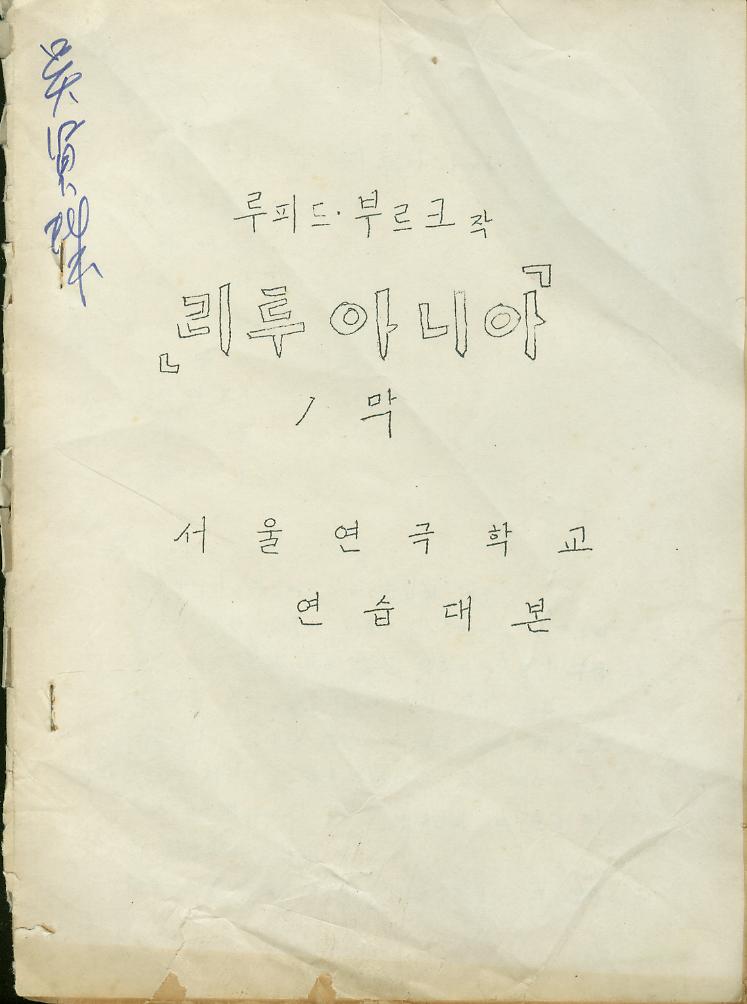 루피드·부르크 작
『리투아니아』
1 막
서울연극학교
연습대본